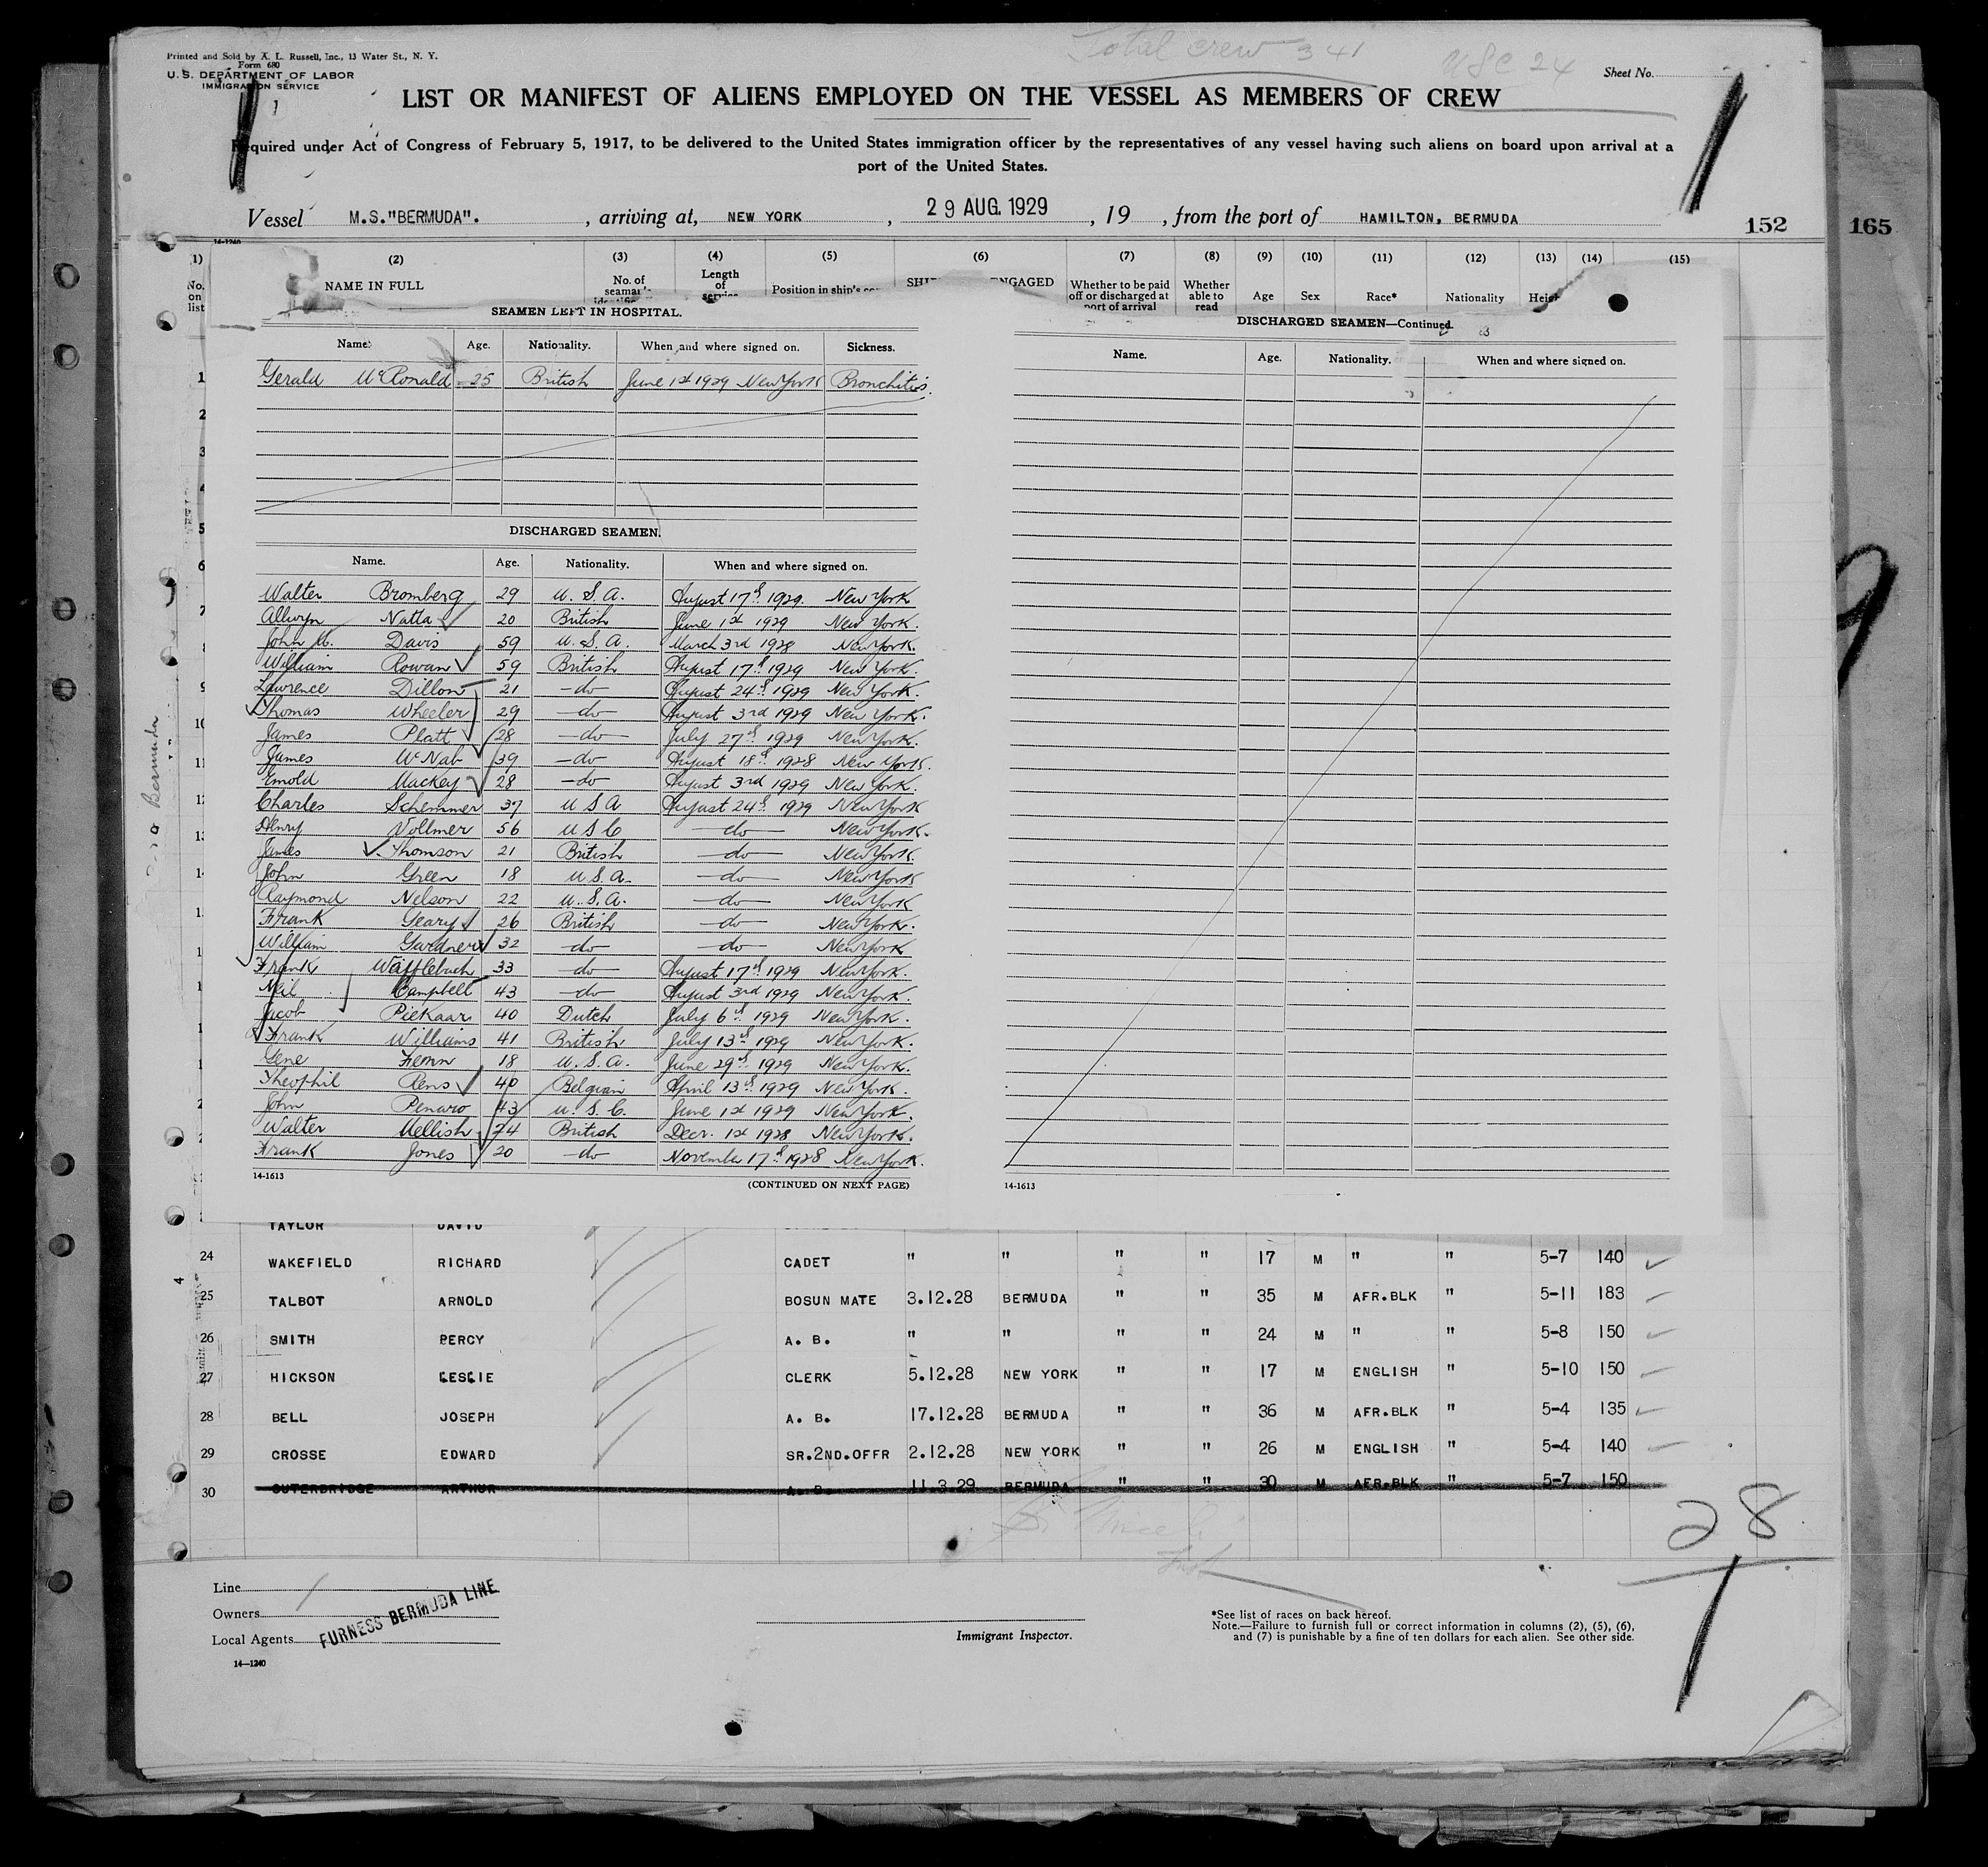 Total crew 341
USC 24
Printed and Sold by A. L. Russell, Inc., 13 Water St., N. Y.
Form 680
U. S. DEPARTMENT OF LABOR
IMMIGRATION SERVICE
Sheet No.
LIST OR MANIFEST OF ALIENS EMPLOYED ON THE VESSEL AS MEMBERS OF CREW
Required under Act of Congress of February 5, 1917, to be delivered to the United States immigration officer by the representatives of any vessel having such aliens on board upon arrival at a
port of the United States.
Vessel M.S."BERMUDA". , arriving at, NEW YORK , 29 AUG. 1929 , 19 , from the port of HAMILTON, BERMUDA
152 165
14-1240
(1) (2) (3) (4) (5) (6) (7) (8) (9) (10) (11) (12) (13) (14) (15)
No. on list NAME IN FULL No. of seaman's Length of service Position in ship's ENGAGED Whether to be paid off or discharged at port of arrival Whether able to read Age Sex Race* Nationality Heigh
SEAMEN LEFT IN HOSPITAL.
Name. Age. Nationality. When and where signed on. Sickness.
Gerald McRonald 25 British June 1st 1929 New York Bronchitis.
DISCHARGED SEAMEN.
Name. Age. Nationality. When and where signed on.
Walter Bromberg 29 U.S.A. August 17th 1929. New York
Allwyn Natta 20 British June 1st 1929 New York.
John M. Davis 59 U.S.A. March 3rd 1928 New York.
William Rowan 59 British August 17th 1929 New York.
Lawrence Dillon 21 -do- August 24th 1929 New York.
Thomas Wheeler 29 -do- August 3rd 1929 New York.
James Platt 28 -do- July 27th 1929 New York.
James McNab 39 -do- August 18th 1928 New York.
Ernold Mackey 28 -do- August 3rd 1929 New York.
Charles Schemmer 37 U S A August 24th 1929 New York
Henry Vollmer 56 U S C -do- New York.
James Thomson 21 British -do- New York.
John Green 18 U.S.A. -do- New York
Raymond Nelson 22 U.S.A. -do- New York
Frank Geary 26 British -do- New York.
William Gardner 32 -do- -do- New York
Frank Wafflebach 33 -do- August 17th 1929 New York.
Neil Campbell 43 -do- August 3rd 1929 New York.
Jacob Piekaar 40 Dutch July 6th 1929 New York.
Frank Williams 41 British July 13th 1929 New York.
Gene Fenn 18 U.S.A. June 29th 1929 New York.
Theophil Rens 40 Belgian April 13th 1929 New York.
John Penaro 43 U.S.C. June 1st 1929 New York.
Walter Mellish 24 British Decr. 1st 1928 New York.
Frank Jones 20 -do- November 17th 1928 New York.
14-1613 (CONTINUED ON NEXT PAGE)
DISCHARGED SEAMEN—Continued.
Name. Age. Nationality. When and where signed on.
14-1613
TAYLOR DAVID
24 WAKEFIELD RICHARD CADET " " " " 17 M " " 5-7 140
25 TALBOT ARNOLD BOSUN MATE 3.12.28 BERMUDA " " 35 M AFR.BLK " 5-11 183
26 SMITH PERCY A. B. " " " " 24 M " " 5-8 150
27 HICKSON LESLIE CLERK 5.12.28 NEW YORK " " 17 M ENGLISH " 5-10 150
28 BELL JOSEPH A. B. 17.12.28 BERMUDA " " 36 M AFR.BLK " 5-4 135
29 CROSSE EDWARD SR.2ND.OFFR 2.12.28 NEW YORK " " 26 M ENGLISH " 5-4 140
30 OUTERBRIDGE ARTHUR A. B. 11.3.29 BERMUDA " " 30 M AFR.BLK " 5-7 150
28
Line
Owners
Local Agents
FURNESS BERMUDA LINE
14—1240
Immigrant Inspector.
*See list of races on back hereof.
Note.—Failure to furnish full or correct information in columns (2), (5), (6),
and (7) is punishable by a fine of ten dollars for each alien. See other side.